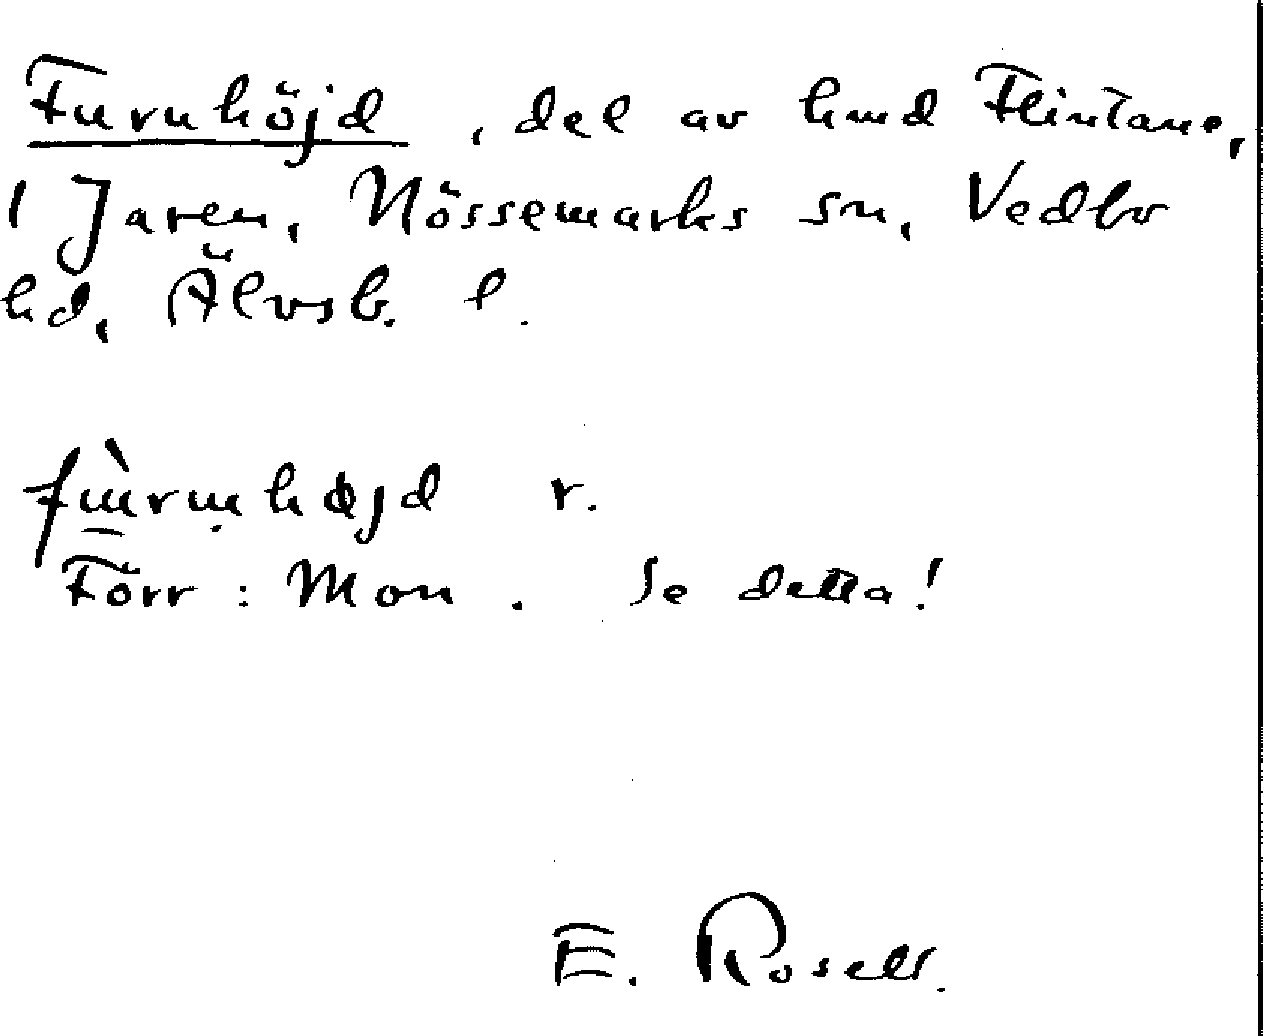 Furuhöjd, del av hmd Flintane,
1 Jaren, Nössemarks sn, Vedbo
hd, Älvsb. l.
r.
Förr: Mon. Se detta!
E. Rosell.